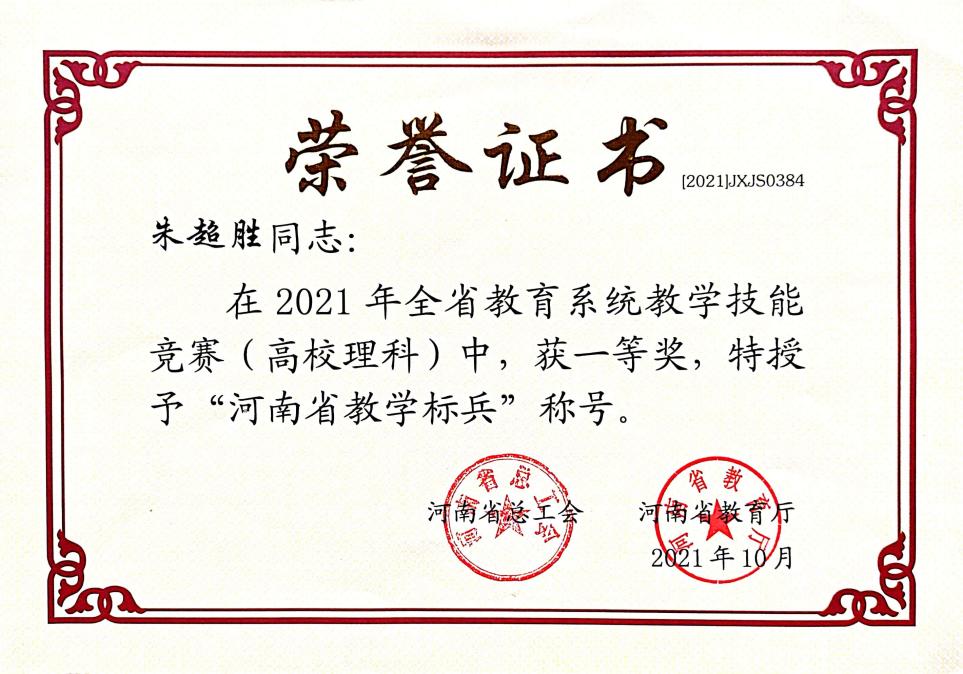 荣誉证书
[2021]JXJS0384
朱超胜同志：
在2021年全省教育系统教学技能
竞赛（高校理科）中，获一等奖，特授
予“河南省教学标兵”称号。
河南省总工会 河南省教育厅
2021年10月
河南省总工会
河南省教育厅